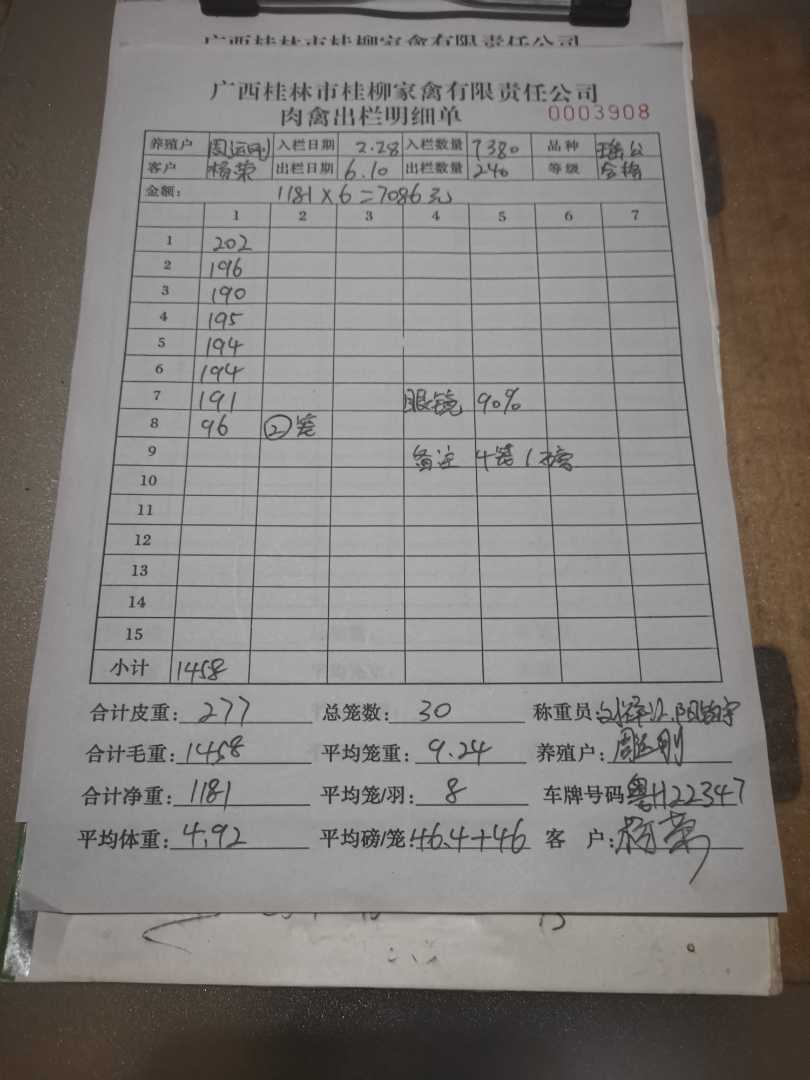 广西桂林市桂柳家禽有限责任公司
广西桂林市桂柳家禽有限责任公司
肉禽出栏明细单 0003908
养殖户 周运刚 入栏日期 2.28 入栏数量 7380 品种 瑶公
客户 杨荣 出栏日期 6.10 出栏数量 240 等级 合格
金额: 1181×6=7086元
1 2 3 4 5 6 7
1 202
2 196
3 190
4 195
5 194
6 194
7 191 眼镜 90%
8 96 ②笼
9 备注 4笼1磅
10
11
12
13
14
15
小计 1458
合计皮重: 277 总笼数: 30 称重员:
合计毛重: 1458 平均笼重: 9.24 养殖户: 周运刚
合计净重: 1181 平均笼/羽: 8 车牌号码 粤H22347
平均体重: 4.92 平均磅/笼: 46.4+46 客 户: 杨荣